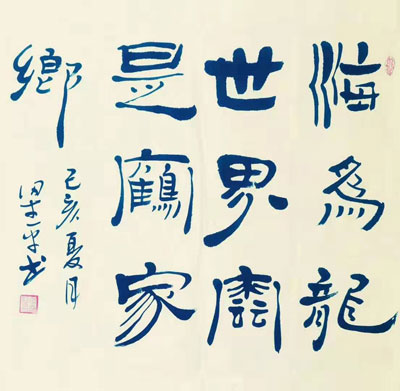 海為龍
世界雲
是鶴家
鄉
己亥夏月
田平书